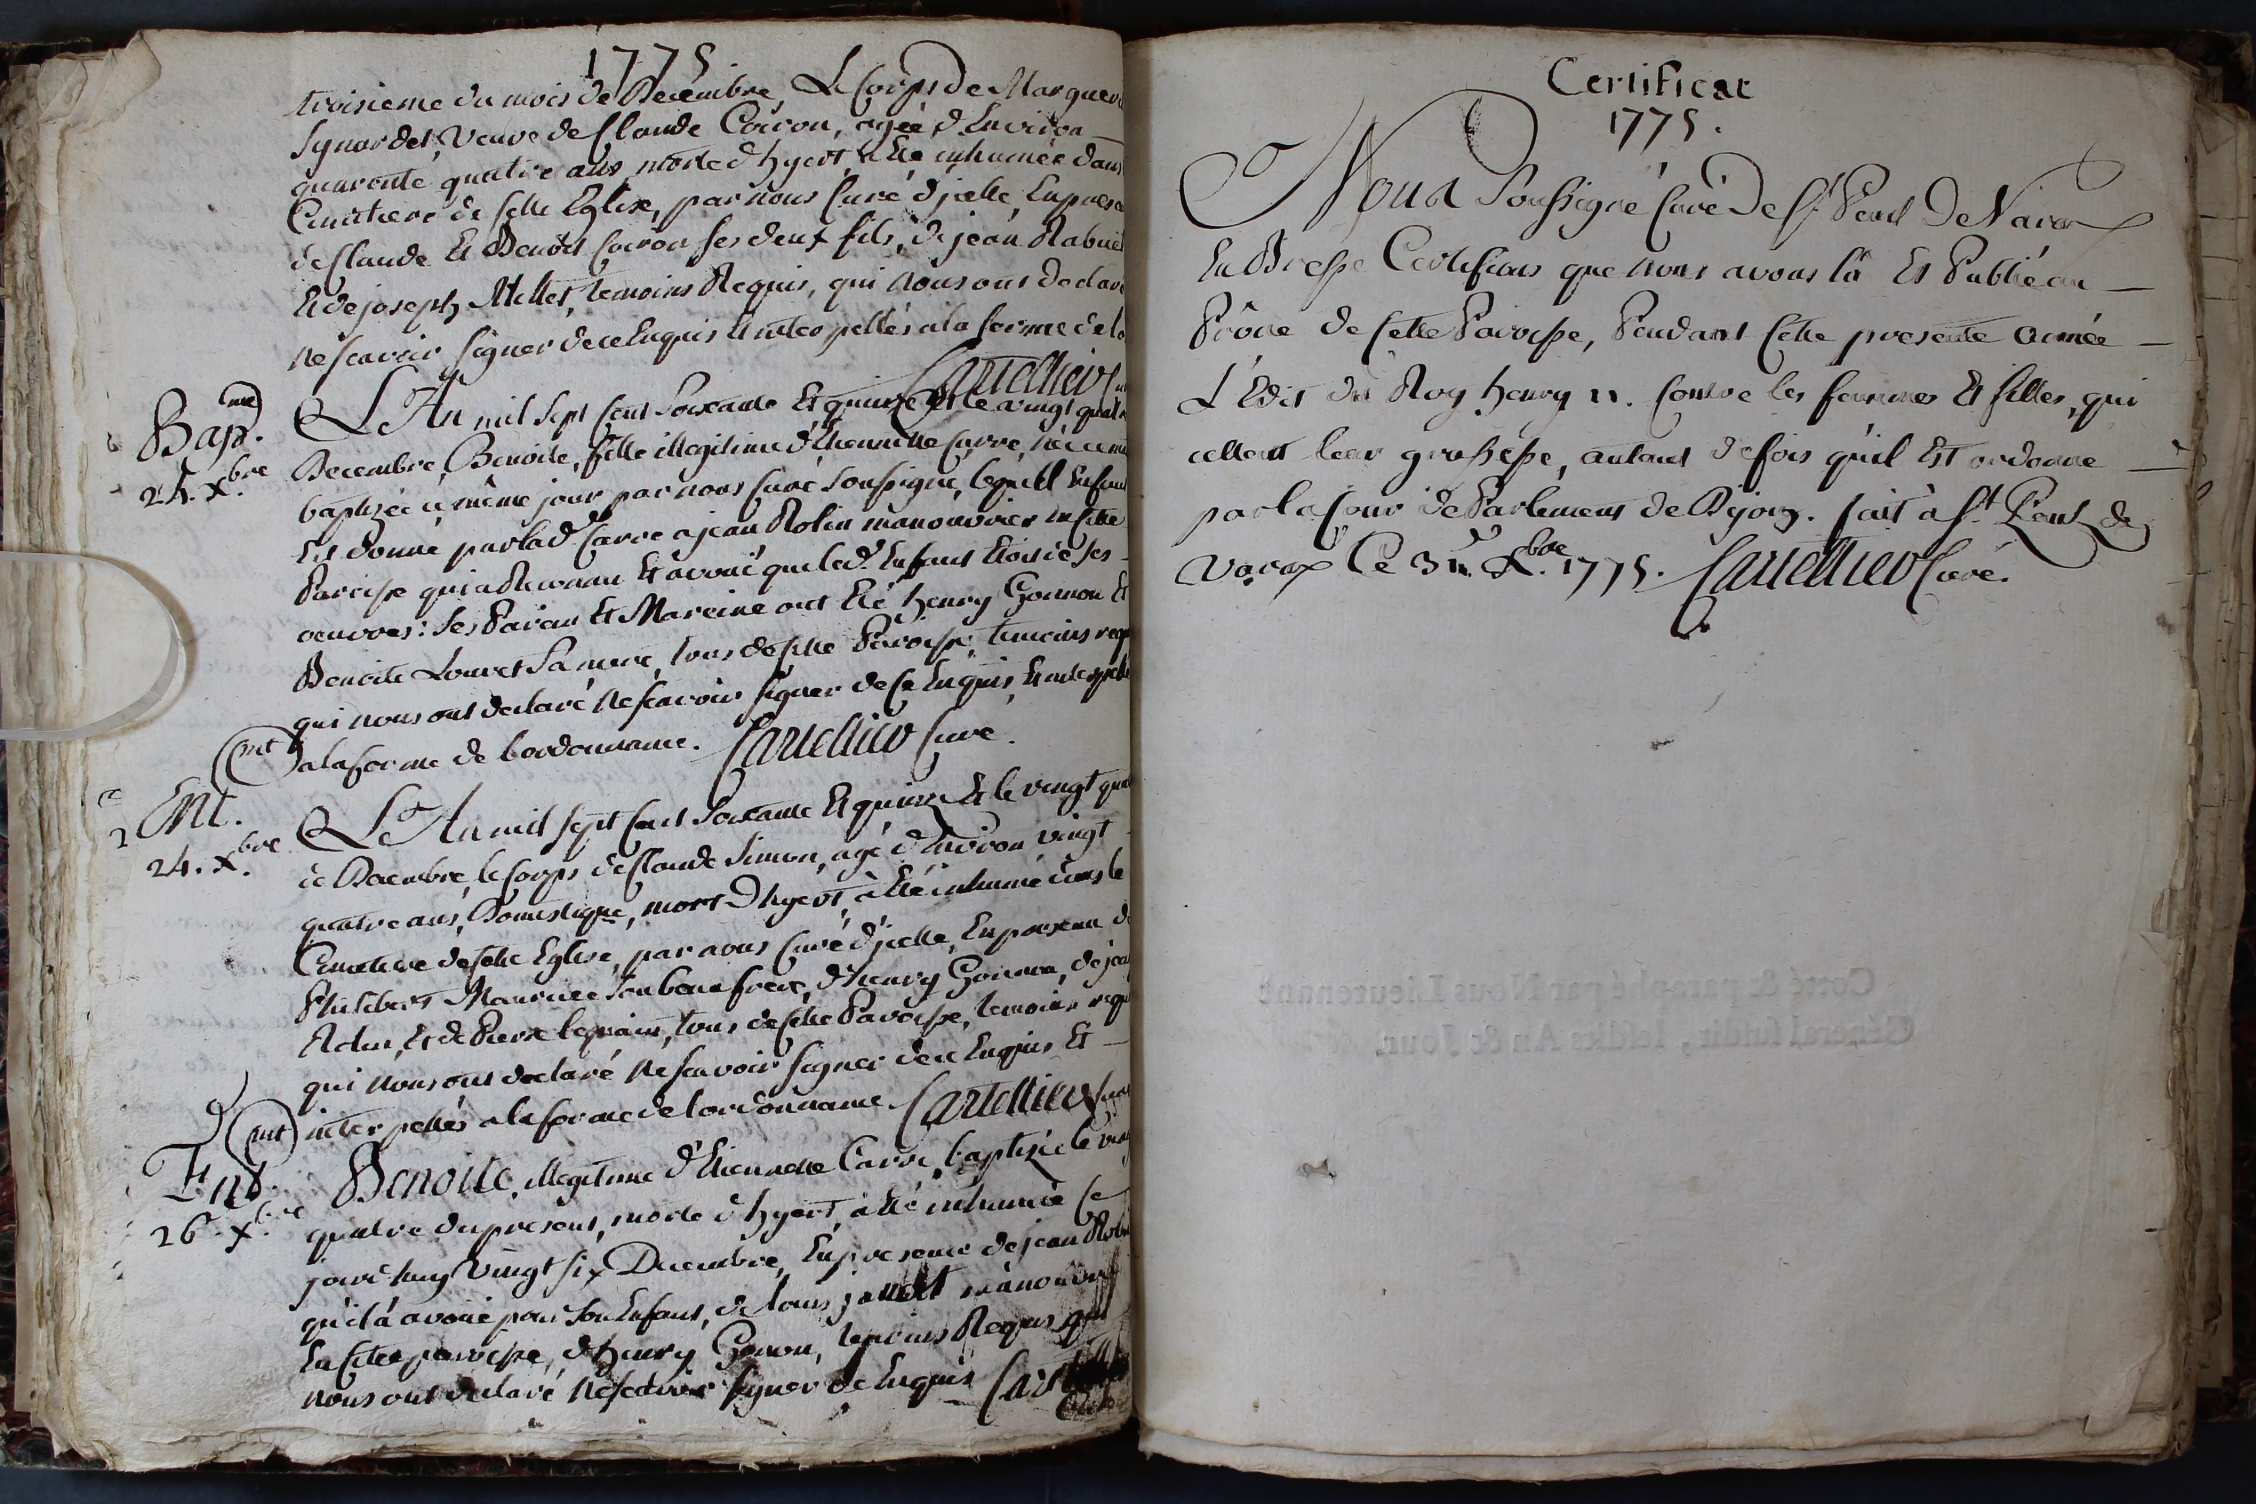 1775
troisieme du mois de Decembre, Le Corps de Marguer
Synardet, veuve de Claude Coiron, agée d'Environ
quarente quatre ans morte d'hyert, a Eté inhumée dans
Cimetiere de cette Eglise, par nous Curé d'jcelle, En presen
de Claude Et Benoit Coiron ses deux fils, de jean Rabuel
Et de joseph Millet, temoins Requis, qui nous ont declaré
ne scavoir signer de ce Enquis Et interpellés a la forme de lo
Cartellier
Bap.me
24. Xbre
L'An mil sept cent soixante Et quinze Et le vingt quatre
Decembre, Benoite, fille illegitime d'Etiennette Carre, née
baptizée ce même jour par nous Curé soussigné, lequel Enfant
Est donné par lad. Carre a jean Rolin manouvrier en cette
Paroisse qui a Reconnu Et avoué que led. Enfant Etoit de ses
oeuvres: ses Parain Et Mareine ont Eté henry Gounon Et
Benoite Louvet sa mere, tous de cette Paroisse, temoins requ
qui nous ont declaré ne scavoir signer de ce Enquis, Et interpellé
a la forme de l'ordonnance. Cartellier Curé.
Ent.mt
24. Xbre
L'An mil sept cent soixante Et quinze Et le vingt quat
de Decembre, le Corps de Claude Simon, agé d'Environ vingt
quatre ans, Domestique, mort d'hyert, a Eté inhumé dans le
Cimetiere de cette Eglise, par nous Curé d'jcelle, En presence de
Philibert Maurice son beau frere, d'henry Gounon, de jean
Et de Pierre tous de cette Paroisse, temoins requ
qui nous ont declaré ne scavoir signer de ce Enquis Et
interpellés a la forme de l'ordonnance. Cartellier Curé
Ent.mt
26. Xbre
Benoite, illegitime d'Etiennette Carre, baptizée le ving
quatre du present, morte d'hyert, a Eté inhumée Ce
jourd'huy vingt six Decembre, En presence de jean Rolin
qui l'a avoué pour son Enfant, de Louis manouvrier
En cette paroisse, d'henry Gonon, temoins Requis qui
nous ont declaré ne scavoir signer de Enquis Cartellier
Curé
Certificat
1775.
Nous Soussigné Curé de St. Paul De Varax
En Bresse Certifions que nous avons lû Et Publié au
Prône de Cette Paroisse, Pendant Cette presente année
L'Edit du Roy henry II. Contre les femmes Et filles, qui
cellent leur grossesse, autant de fois qu'il Est ordonné
par la Cour de Parlement de Dijon. fait à St. Paul de
Varax Ce 31. Xbre. 1775. Cartellier Curé.
Cotté & paraphé par Nous Lieutenant
Géneral susdit, lesdits An & Jour.